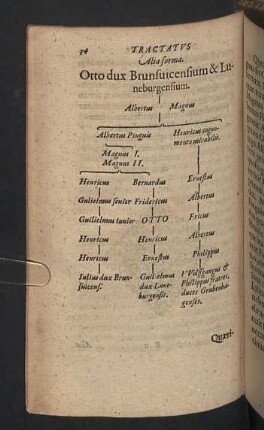 14 TRACTATVS
Alia forma.
Otto dux Brunsuicensium & Lu-
neburgensium.
Albertus Magnus
Albertus Pinguis Henricus cogno-
mento mirabilis.
Magnus I.
Magnus II.
Henricus Bernardus Ernestus
Gulielmus senior Fridericus Albertus
Guilielmus iunior OTTO Ericus
Henricus Henricus Albertus
Henricus Ernestus Philippus
Iulius dux Brun- Guilielmus VVolfgangus &
suicens. dux Lune- Philippus fratres,
burgensis. duces Grubenha-
genses.
Quæri-